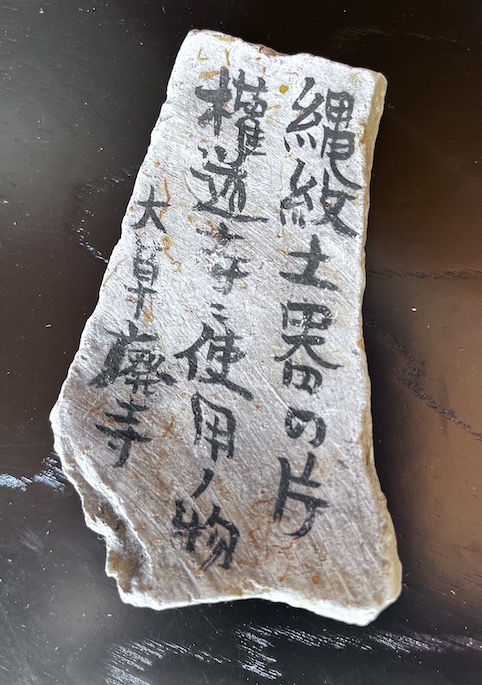 縄紋土器の片
権道寺ニ使用ノ物
大草廃寺